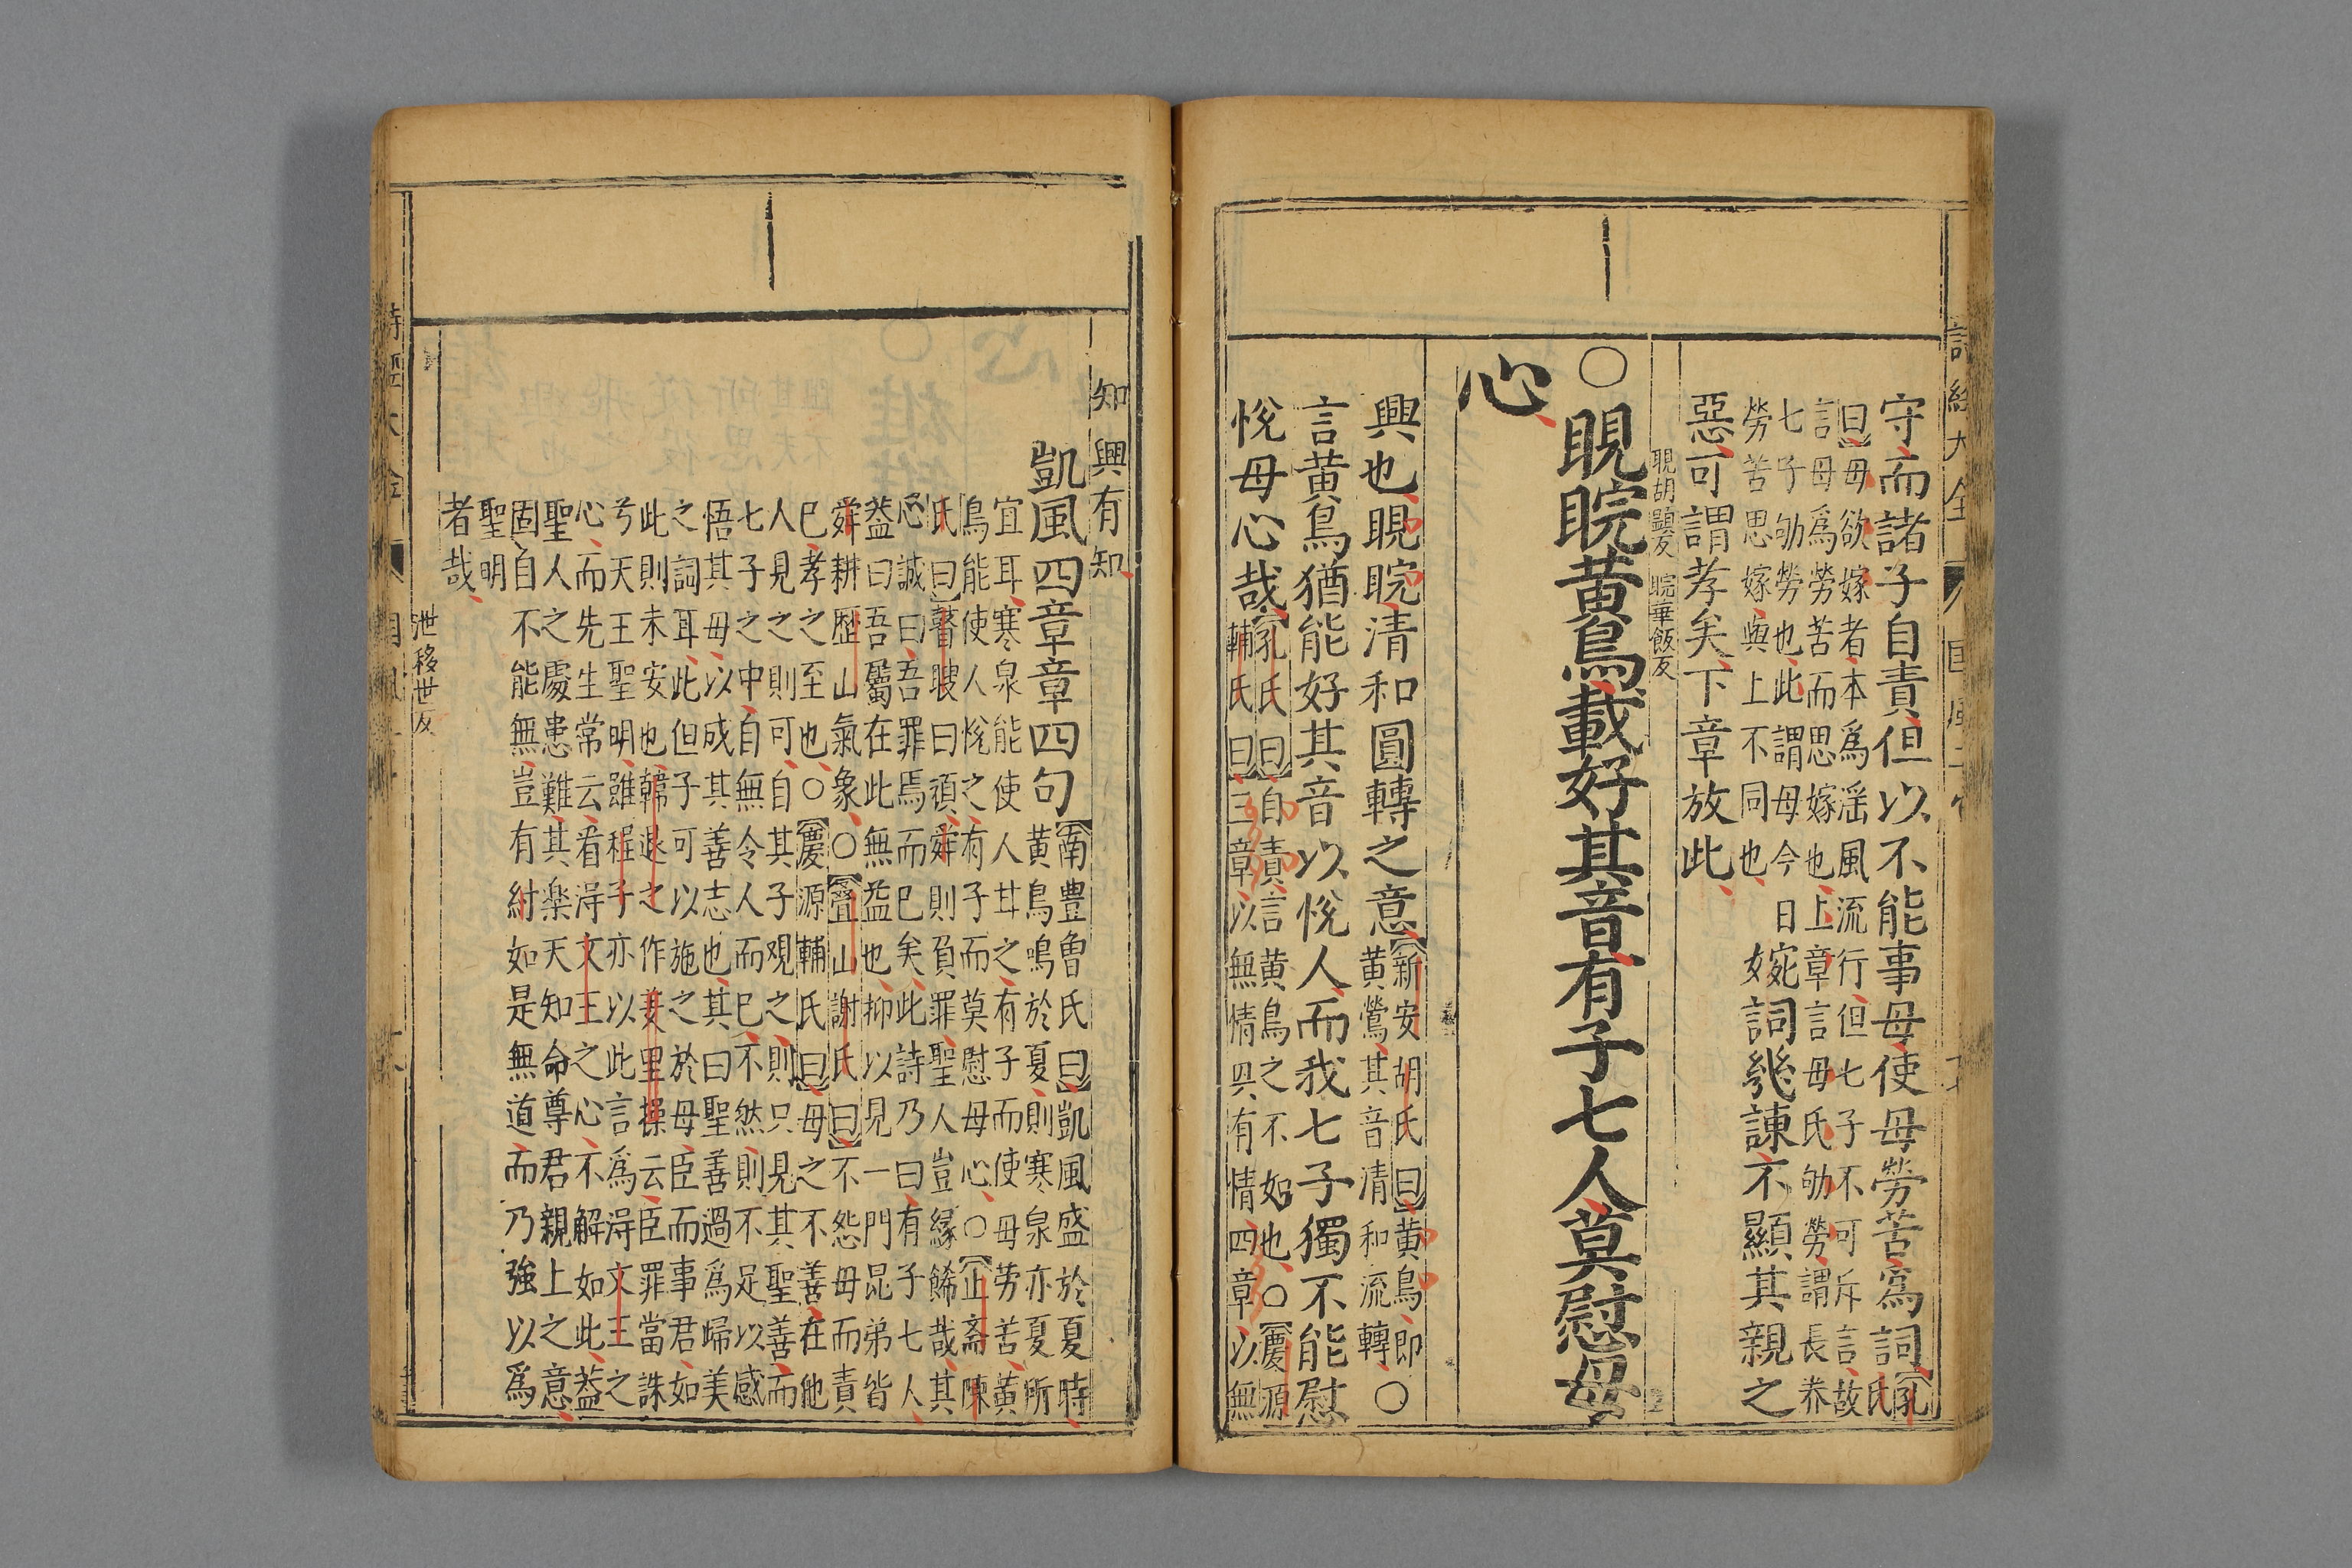 詩經大全
國風
守而諸子自責但以不能事母使母勞苦爲詞【孔氏
曰】母欲嫁者本爲淫風流行但七子不可斥言故
言母爲勞苦而思嫁也上章言母氏劬勞謂長養
七子劬勞也此謂母今日
勞苦思嫁與上不同也
婉詞幾諫不顯其親之
惡可謂孝矣下章放此
睍胡顯反 睆華飯反
○睍睆黃鳥載好其音有子七人莫慰母
心
興也睍睆清和圓轉之意【新安胡氏曰】黃鳥即
黃鶯其音清和流轉○
言黃鳥猶能好其音以悅人而我七子獨不能慰
悅母心哉【孔氏曰】自責言黃鳥之不如也○【慶源
輔氏曰】三章以無情興有情四章以無
知興有知
凱風四章章四句【南豊曾氏曰】凱風盛於夏時
黃鳥鳴於夏則寒泉亦夏所
宜耳寒泉能使人甘之有子而使母勞苦黃
鳥能使人悅之有子而莫慰母心○【止齋陳
氏曰】瞽瞍曰頑舜則負罪聖人豈緣餙哉其
心誠曰吾罪焉而已矣此詩乃曰有子七人
益曰吾屬在此無益也抑以見一門昆弟皆
舜耕歷山氣象○【疊山謝氏曰】不怨母而責
已孝之至也○【慶源輔氏曰】母之不善在他
人見之則可自其子觀之則只見其聖善而
七子之中自無令人而已不然則不足以感
悟其母以成其善志也其曰聖善過爲歸美
之詞耳此但子可以施之於母臣而事君如
此則未安也韓退之作羑里操云臣罪當誅
兮天王聖明雖程子亦以此言爲淂文王之
心而先生常云看淂文王之心不解如此益
聖人之處患難其楽天知命尊君親上之意
固自不能無豈有紂如是無道而乃強以爲
聖明
者哉
泄移世反
詩經大全
國風